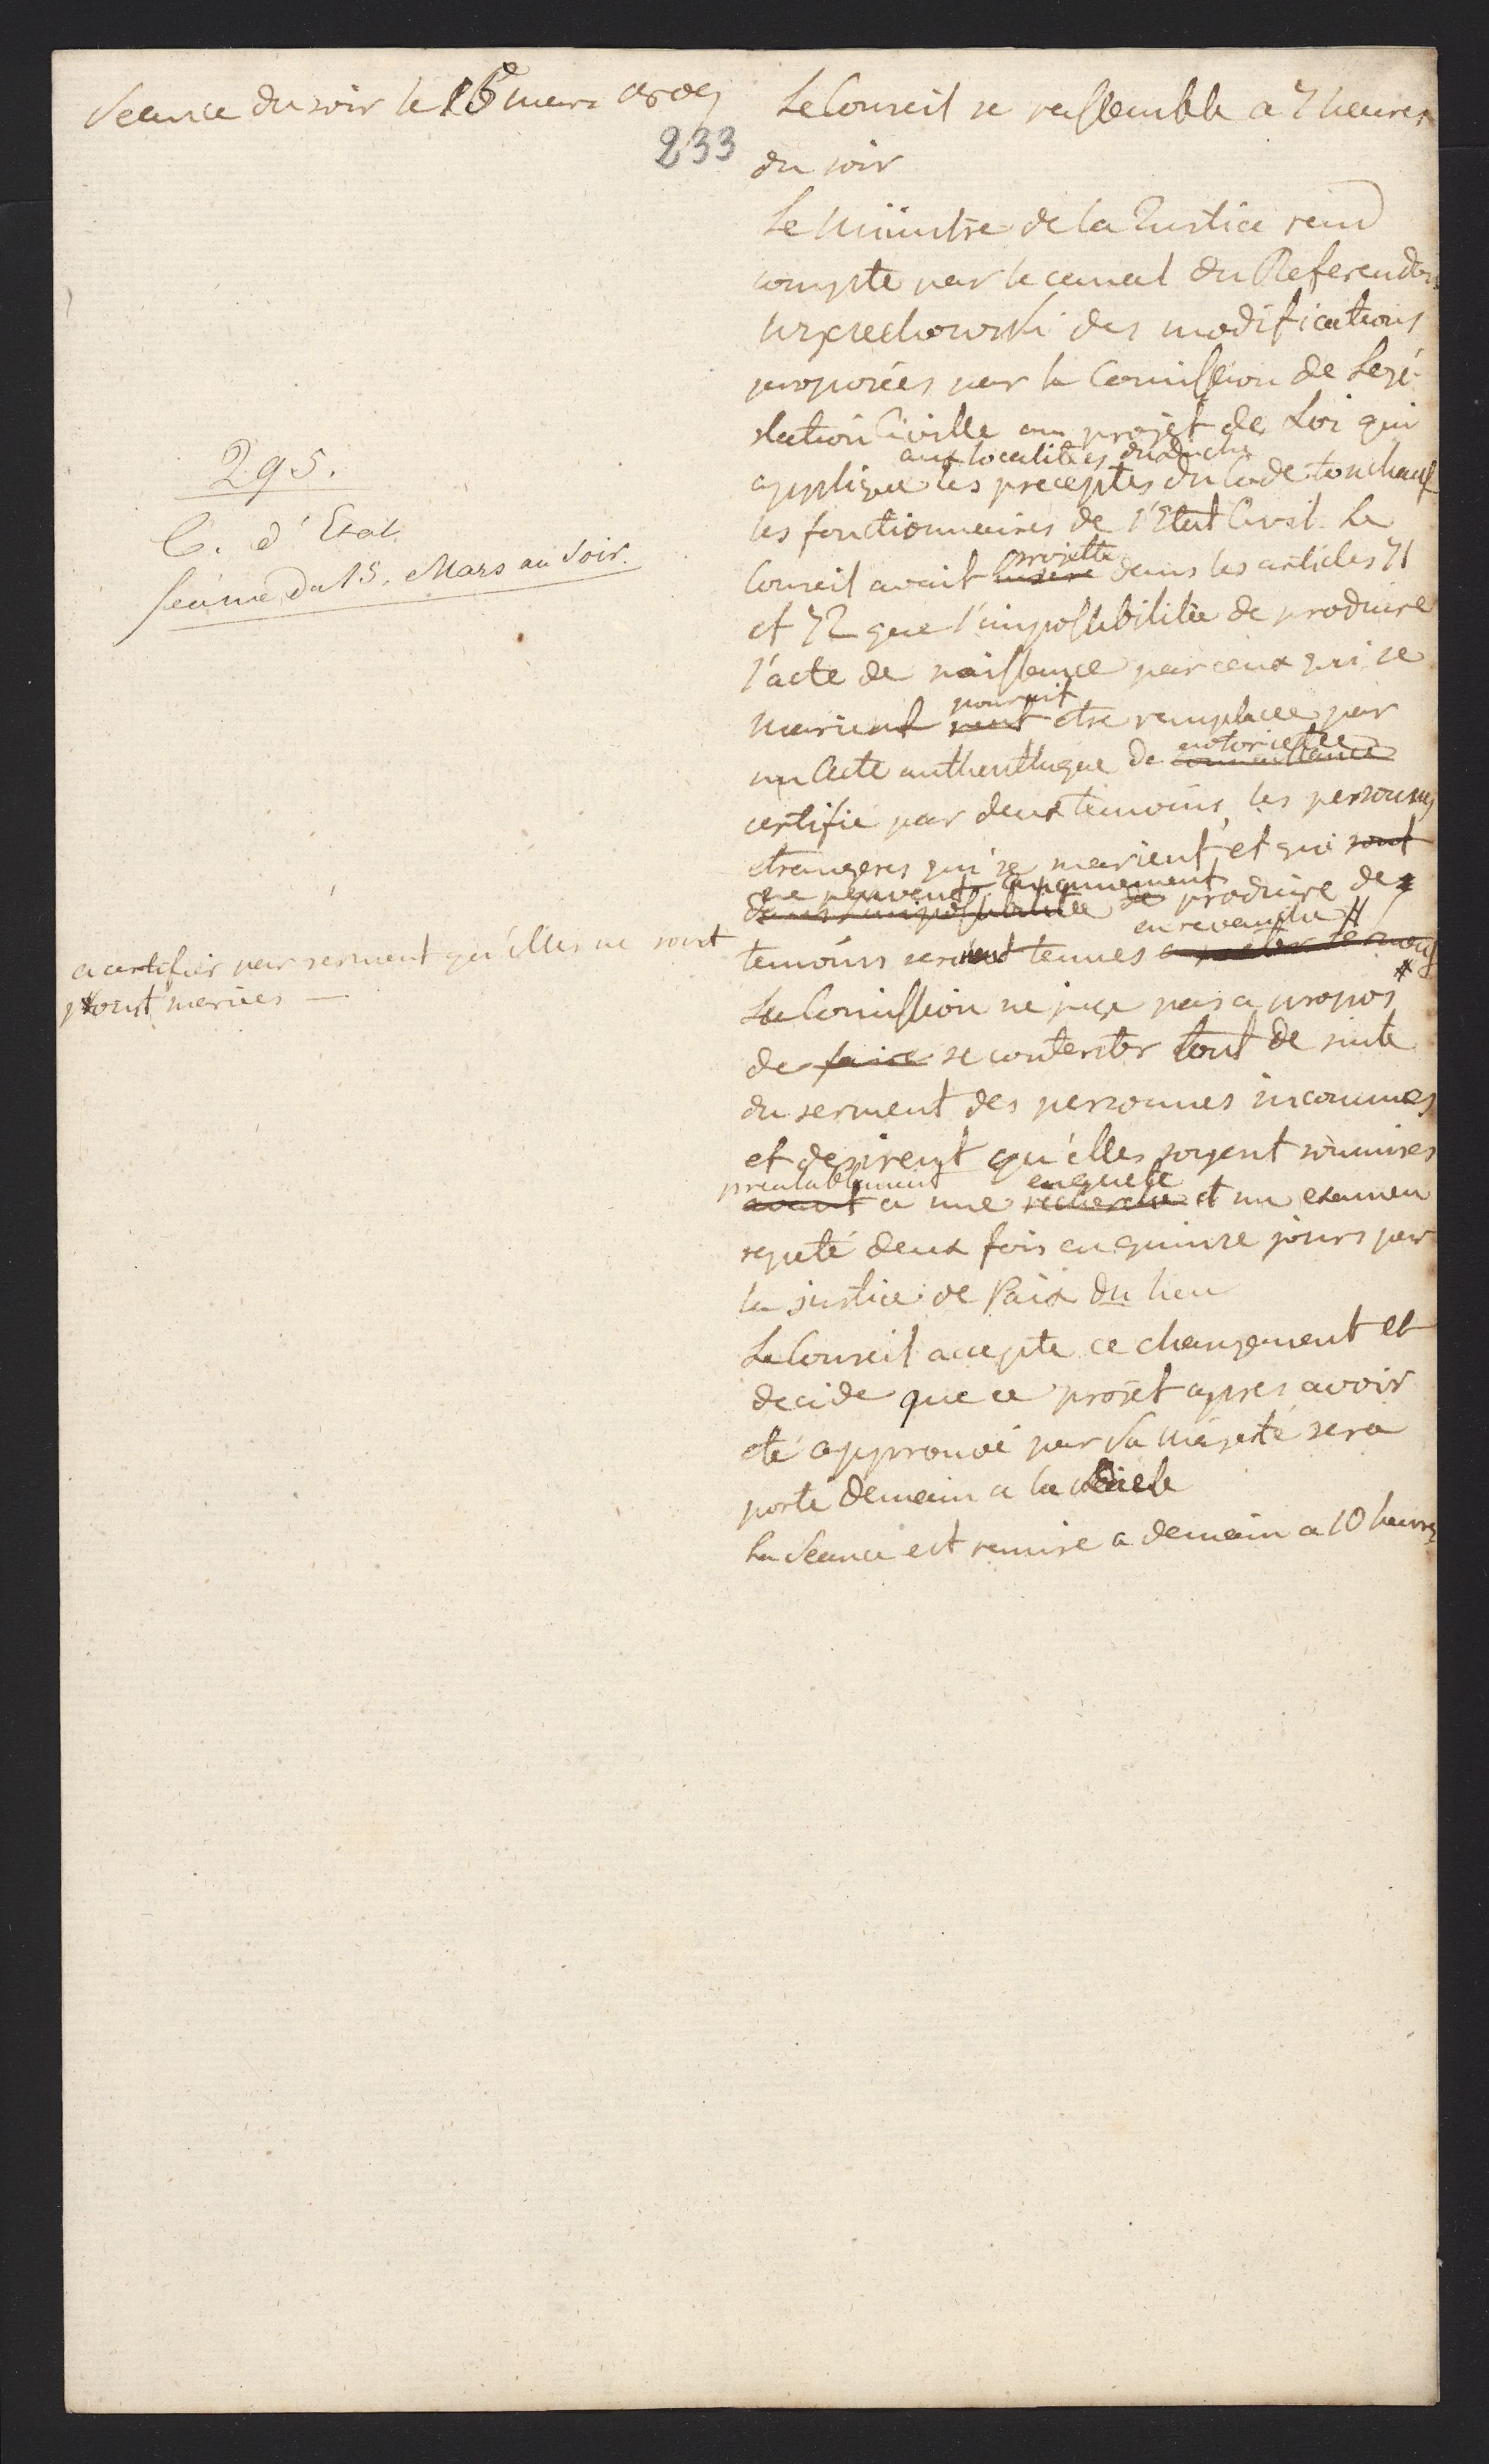 Seance du soir le 15 mars 1809
233
295.
C. d'Etat.
Seance du 15. Mars au Soir.
Le Conseil se rassemble a 7 heures
du soir
Le Ministre de la Justice rend
compte par le canal du Referendaire
Wyczechowski des modifications
proposées par la Comission de Legi-
slation Civille au projet de Loi qui
aux localitées du duché
applique les preceptes du Code touchant
les fonctionnaires de l'Etat Civil. Le
projetté
Conseil avait inseré dans les articles 71
et 72 que l'impossibilitée de produire
l'acte de naissance par ceux qui se
pourrait
marient peut etre remplacee par
notorietée
un Acte authenthique de connaissance
certifie par deux temoins, les personnes
etrangeres qui se marient et qui sont
ne peuvent aucunement
dans l'impossibilitée de produire des
en revanche #
temoins seraient tenues a preter serment
a certifier par serment qu'elles ne sont
point mariées —
La Comission ne juge pas a propos
de faire se contenter tout de suite
du serment des personnes inconnues
et desirent qu'elles soyent soumises
prealablement enquete
avant a une recherche et un examen
repeté deux fois en quinze jours par
la justice de Paix du lieu
Le Conseil accepte ce changement et
decide que ce projet apres avoir
eté approuvé par Sa Majesté sera
porté demain a la Diete
La Seance est remise a demain a 10 heures